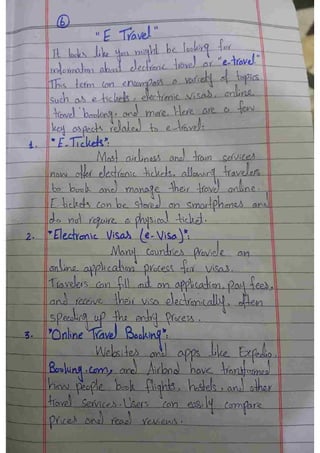 6
"E Travel"
It looks like you might be looking for
information about electronic travel or "e-travel"
This term can encompass a variety of topics
such as e tickets, electronic visas, online
travel booking, and more. Here are a few
key aspects related to e-travel:
1. "E-Tickets":
Most airliness and train services
now offer electronic tickets, allowing travelers
to book and manage their travel online.
E tickets can be stored on smartphones and
do not require a physical ticket.
2. "Electronic Visas (e-Visa)":
Many countries provide an
online application process for visas.
Travelers can fill out an application, pay fees,
and receive their visa electronically, often
speeding up the entry process.
3. "Online Travel Booking":
Websites and apps like Expedia,
Booking.com, and Airbnd have transformed
how people book flights, hostels, and other
travel services. Users can easily compare
prices and read reviews.